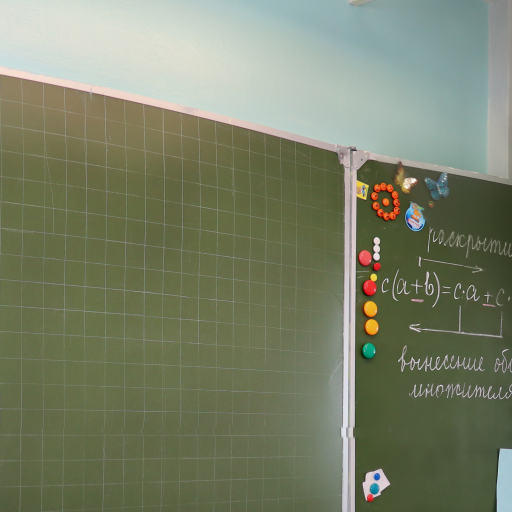 раскрыти
c(a+b)=c·a+c·
вынесение об
множителя